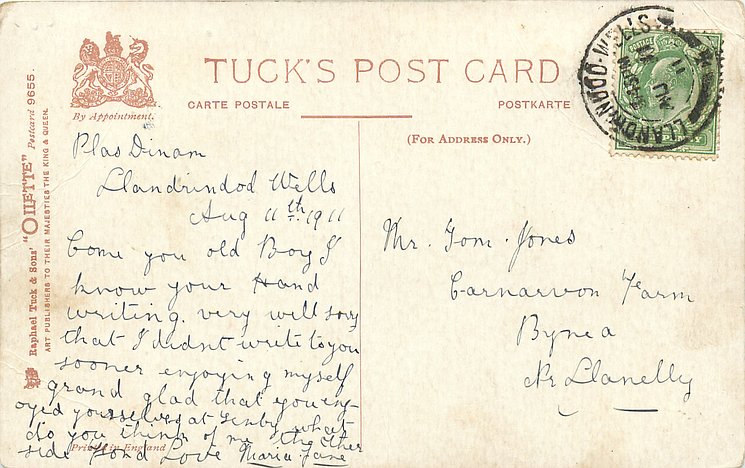 TUCK'S POST CARD
CARTE POSTALE
POSTKARTE
By Appointment.
(FOR ADDRESS ONLY.)
Raphael Tuck & Sons' "OILETTE" Postcard 9655.
ART PUBLISHERS TO THEIR MAJESTIES THE KING & QUEEN.
LLANDRINDOD-WELLS
AU 11
11
Plas Dinam
Llandrindod Wells
Aug 11th 1911
Come you old Boy I
know your Hand
writing very will sory
that I didnt write to you
sooner enjoying myself
grand glad that you enj-
oyed yourselves at Tenby what
do you think of me the other
side Fond Love Maria Jane
Printed in England
Mr. Tom. Jones
Carnarvon Farm
Bynea
Nr Llanelly